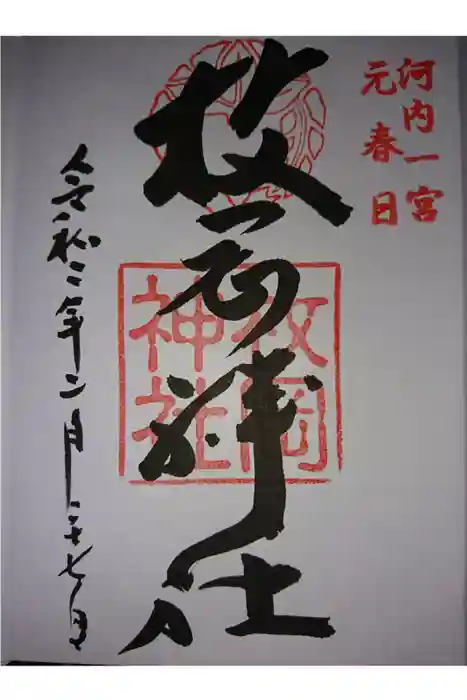 河内一宮
元春日
枚岡神社
枚岡
神社
令和二年二月二十七日